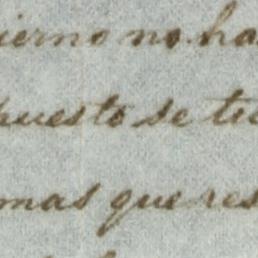 ierno no ha
puesto se ti
mas que res